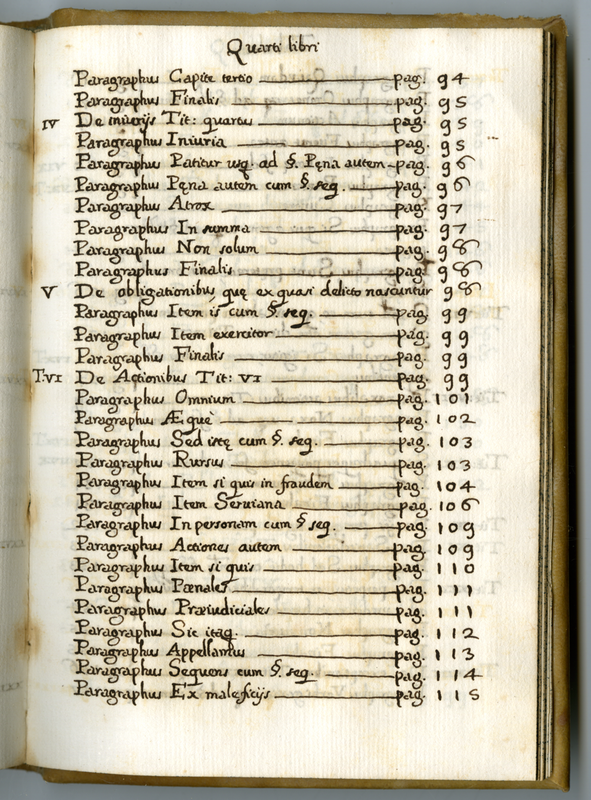 Quarti libri
Paragraphus Capite tertio pag. 94
Paragraphus Finalis pag. 95
IV De iniurijs Tit: quartus pag. 95
Paragraphus Iniuria pag. 95
Paragraphus Patitur usq. ad §. Pęna autem pag. 96
Paragraphus Pęna autem cum §. seq. pag. 96
Paragraphus Atrox pag. 97
Paragraphus In summa pag. 97
Paragraphus Non solum pag. 98
Paragraphus Finalis pag. 98
V De obligationibus quę ex quasi delicto nascuntur 98
Paragraphus Item is cum §. seq. pag. 99
Paragraphus Item exercitor pag. 99
Paragraphus Finalis pag. 99
T.VI De Actionibus Tit: VI pag. 99
Paragraphus Omnium pag. 101
Paragraphus Æquè pag. 102
Paragraphus Sed istę cum §. seq. pag. 103
Paragraphus Rursus pag. 103
Paragraphus Item si quis in fraudem pag. 104
Paragraphus Item Seruiana pag. 106
Paragraphus In personam cum § seq. pag. 109
Paragraphus Actiones autem pag. 109
Paragraphus Item si quis pag. 110
Paragraphus Pænales pag. 111
Paragraphus Præiudiciales pag. 111
Paragraphus Sic itaq. pag. 112
Paragraphus Appellamus pag. 113
Paragraphus Sequens cum §. seq. pag. 114
Paragraphus Ex malęficijs pag. 115